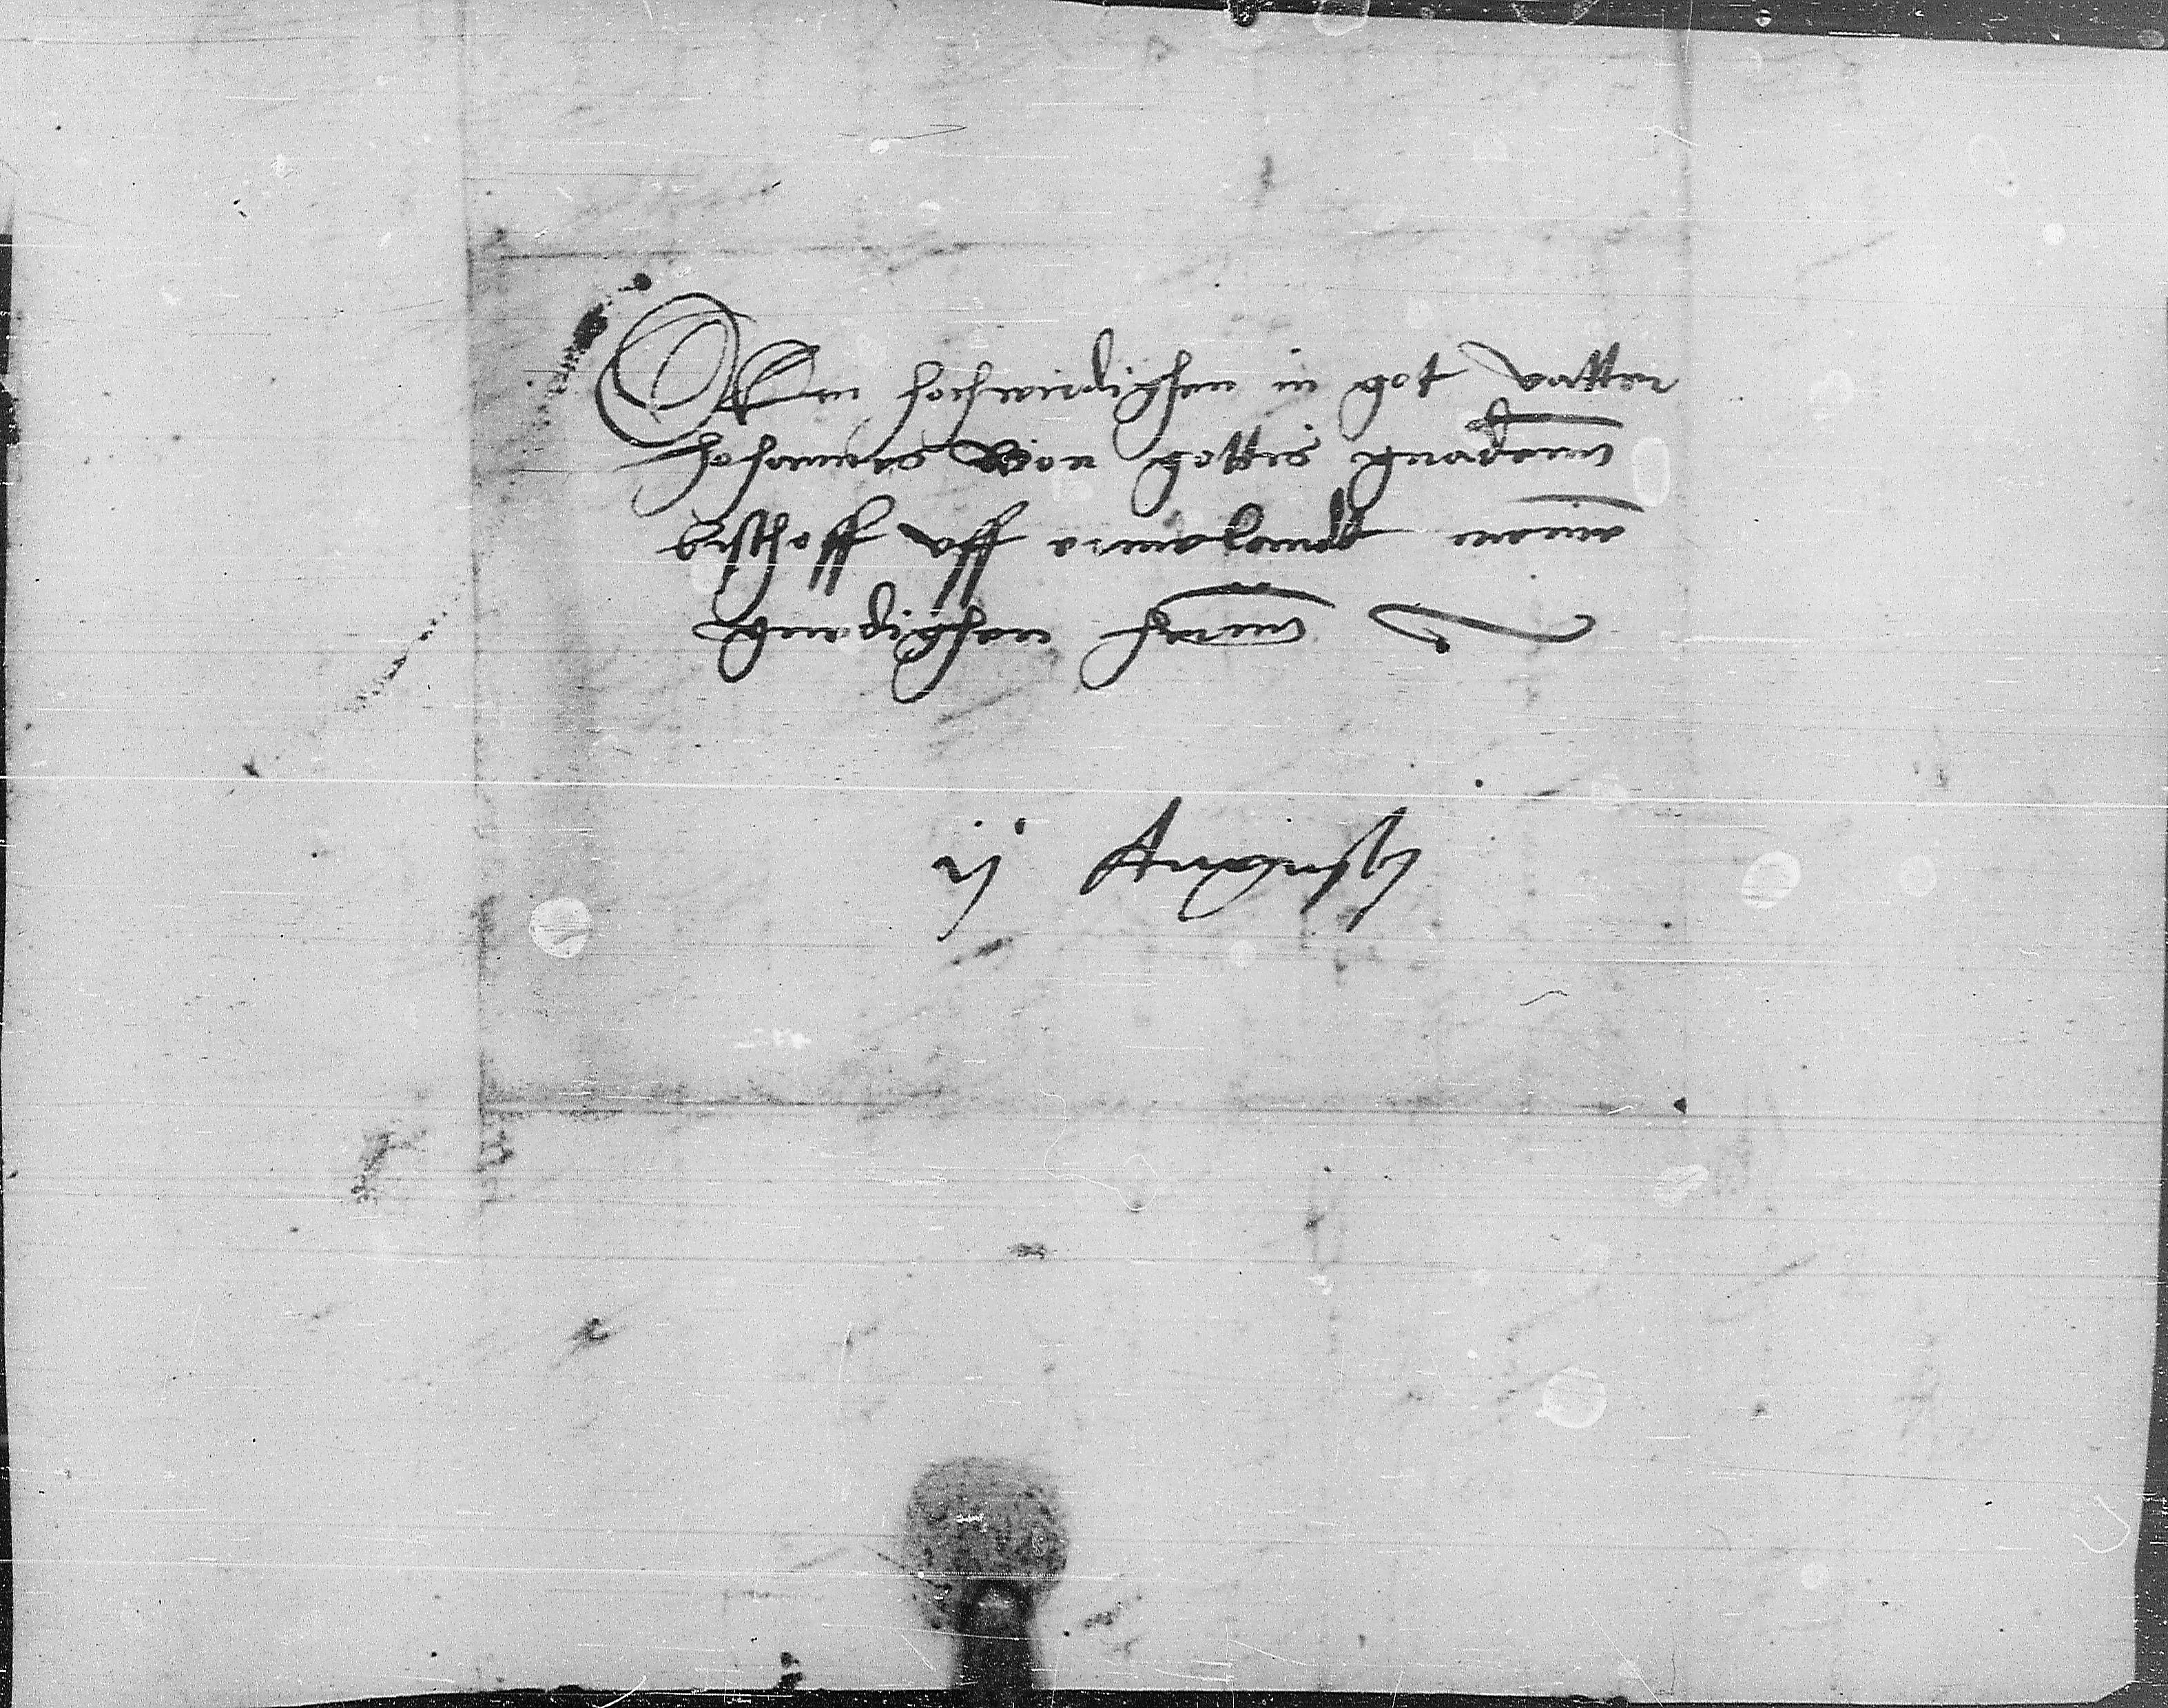 Dem hochwirdighen in got vatter
Johannes von gottis gnadenn
bisschoff uff ermelandt meine
gnedighen hernn
ij Augusti